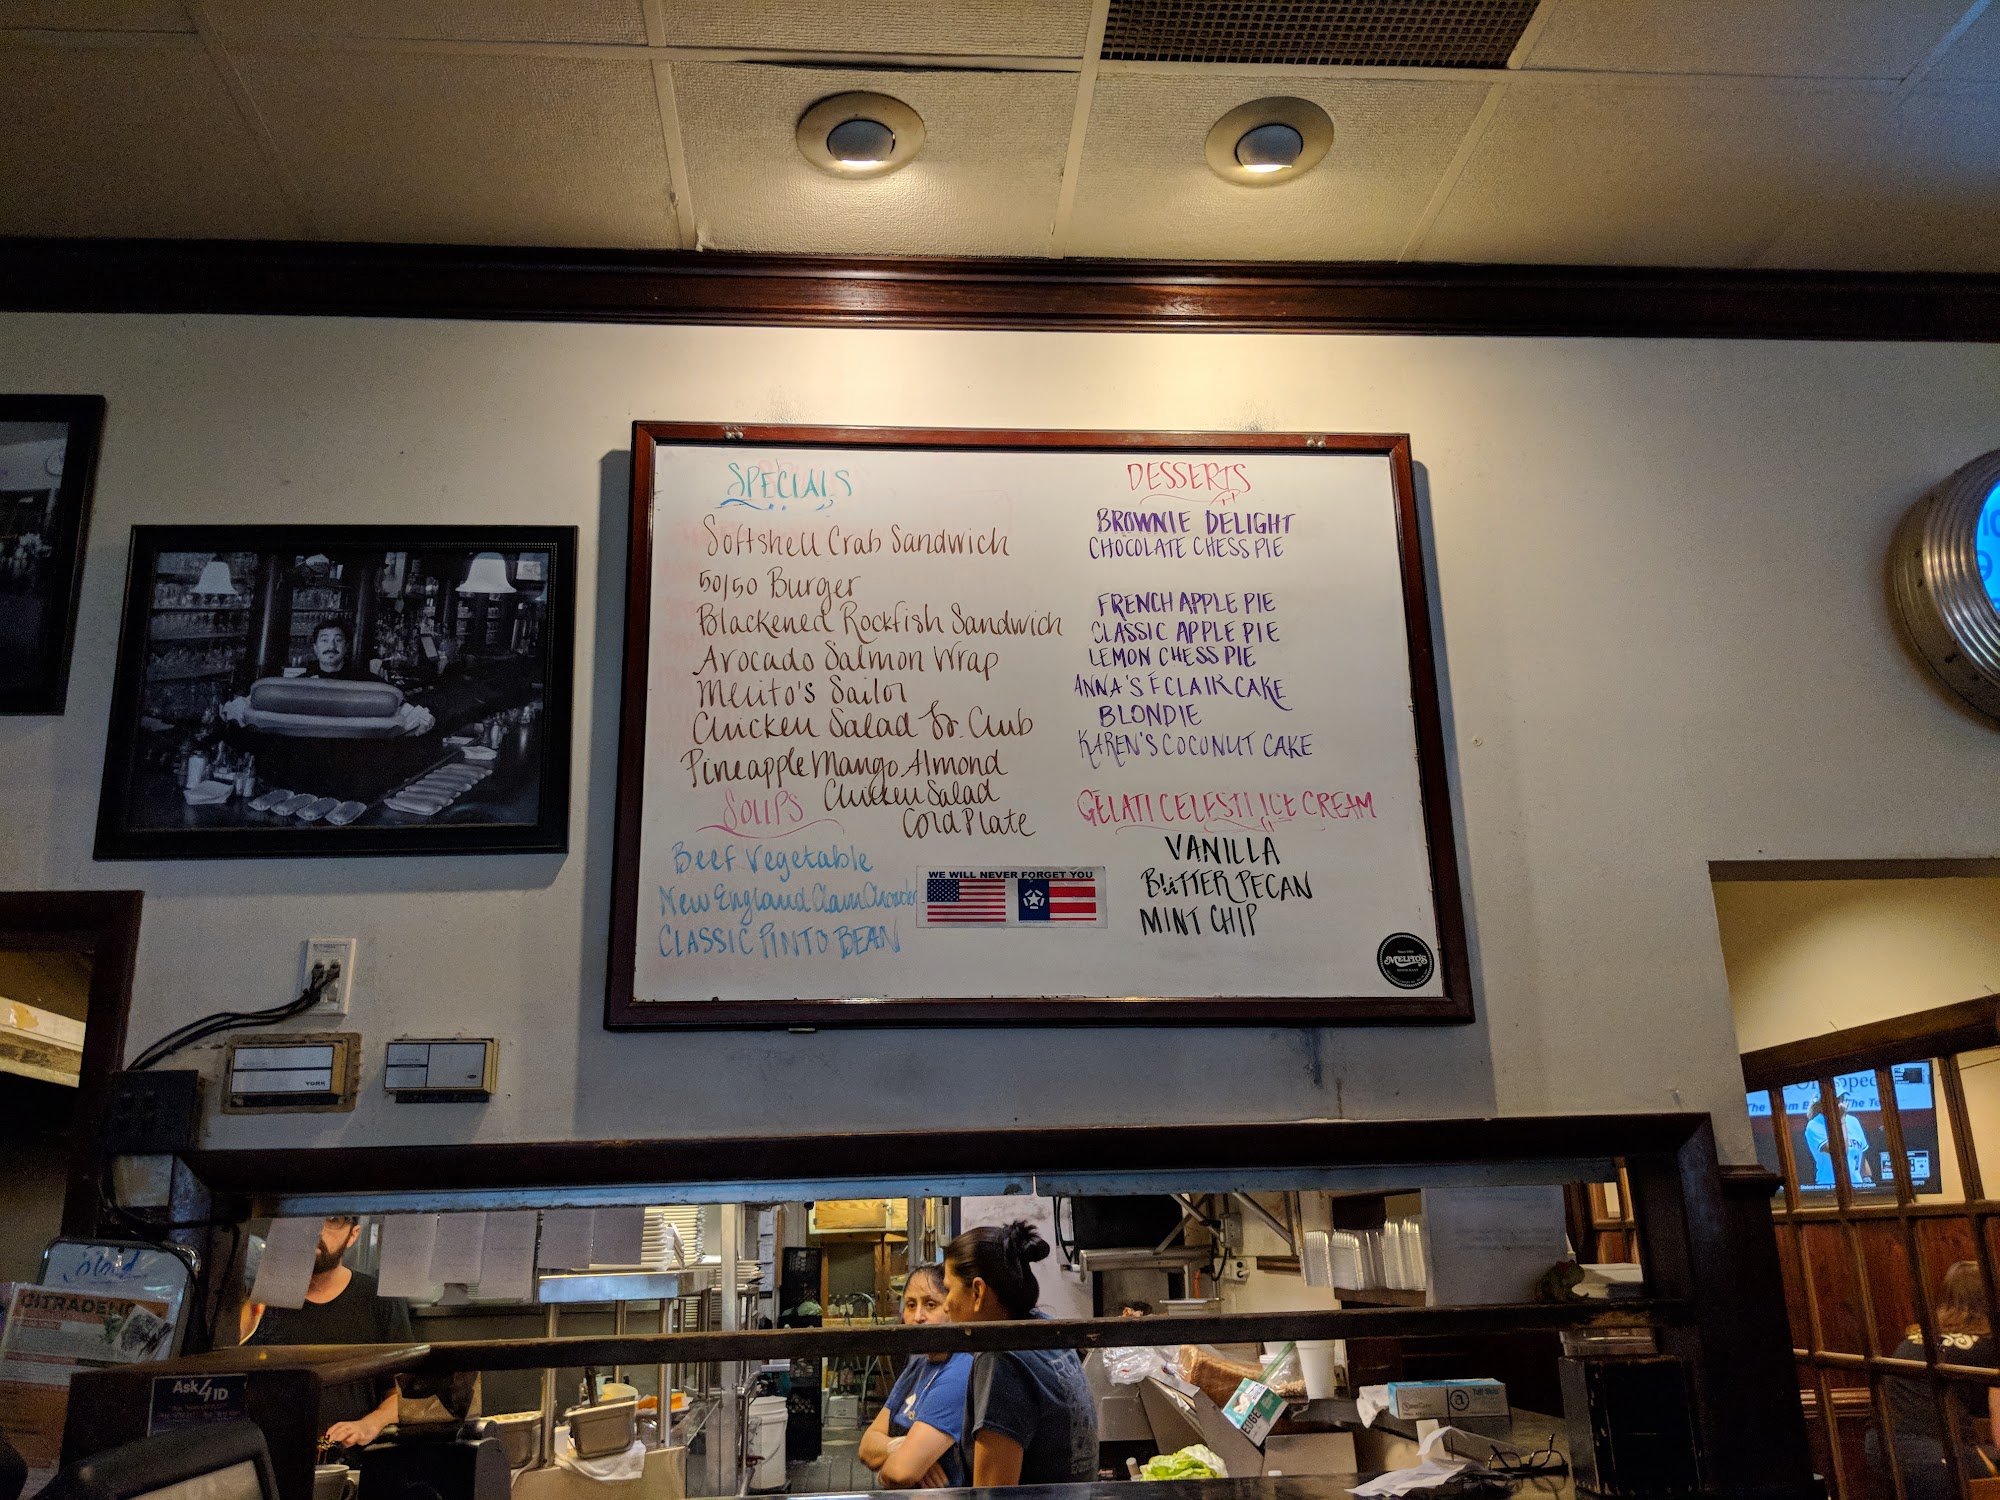 SPECIALS
Softshell Crab Sandwich
50/50 Burger
Blackened Rockfish Sandwich
Avocado Salmon Wrap
Melito's Sailor
Chicken Salad Jr. Club
Pineapple Mango Almond
Chicken Salad
Cold Plate
SOUPS
Beef Vegetable
New England Clam Chowder
CLASSIC PINTO BEAN
DESSERTS
BROWNIE DELIGHT
CHOCOLATE CHESS PIE
FRENCH APPLE PIE
CLASSIC APPLE PIE
LEMON CHESS PIE
ANNA'S ÉCLAIR CAKE
BLONDIE
KAREN'S COCONUT CAKE
GELATI CELESTI ICE CREAM
VANILLA
BUTTER PECAN
MINT CHIP
WE WILL NEVER FORGET YOU
MELITO'S
YORK
Ask 4 ID
EDGE